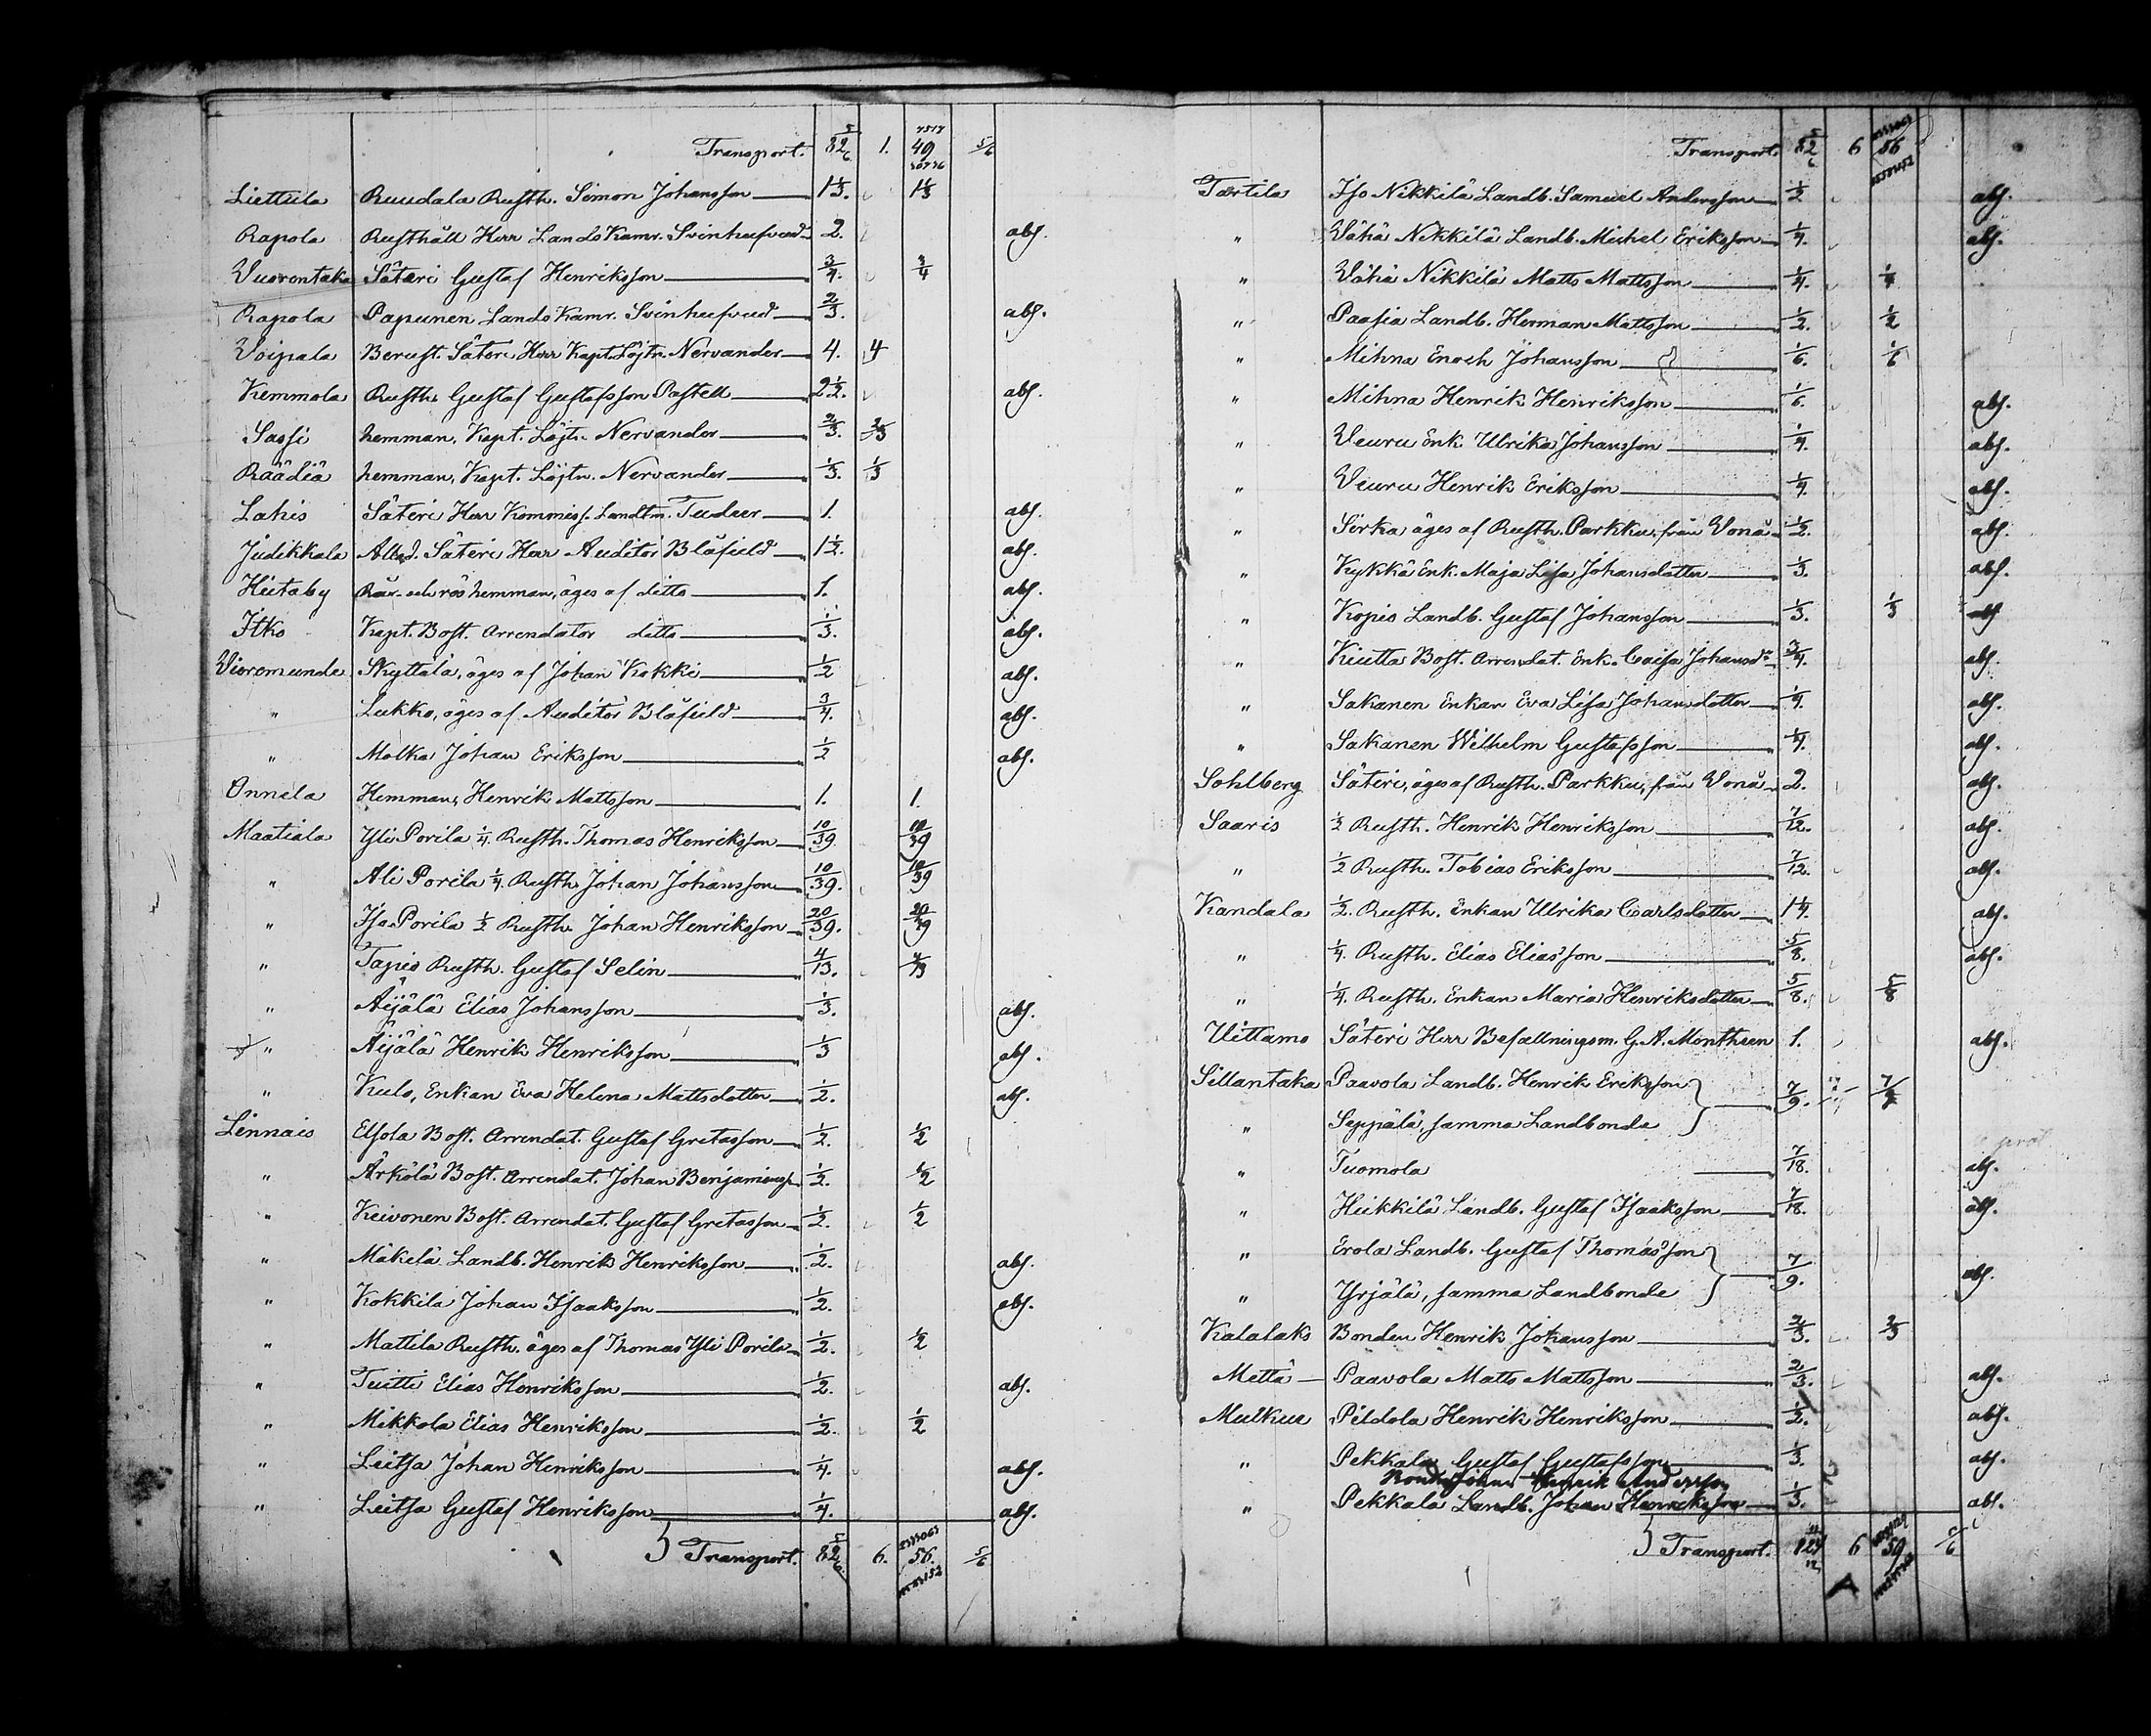 Transport. 82 5/6 1. 49 5/6
Liettula Ruudala Rusth. Simon Johansson 1 1/3. 1 1/3
Rapola Rusthåll Herr Lands Kamr. Svinhufvud 2. abs.
Vuorentaka Säteri Gustaf Henriksson 3/4. 3/4
Rapola Papunen Lands Kamr. Svinhufvud 2/3. abs.
Voipala Berust. Säteri Herr Kapt. Löjtn. Nervander 4. 4
Kemmola Rusth. Gustaf Gustafsson Pastell 2 1/2. abs.
Sassi hemman, Kapt. Löjtn. Nervander 2/3. 2/3
Räädiä hemman, Kapt. Löjtn. Nervander 1/3. 1/3
Lahis Säteri Herr Kommiss. Landtm. Tudeer 1. abs.
Judikkala Allod. Säteri Herr Auditör Blåfield 1 1/2. abs.
Hietaby Rår- och rös hemman, äges af ditto 1. abs.
Itko Kapt. Bost. Arrendator ditto 1/3. abs.
Vioremunde Skyttälä, äges af Johan Kokki 1/2 abs.
" Lukko, äges af Auditör Blåfield 3/4. abs.
" Molka Johan Eriksson 1/2 abs.
Onnela Hemman, Henrik Mattsson 1. 1.
Maatiala Yli Porila 1/4. Rusth. Thomas Henriksson 10/39 10/39
" Ali Porila 1/4. Rusth. Johan Johansson 10/39. 10/39
" Iso Porila 1/2 Rusth. Johan Henriksson 20/39. 20/39
" Tapio Rusth. Gustaf Selin 4/13. 4/13
" Äijälä Elias Johansson 1/3. abs.
" Äijälä Henrik Henriksson 1/3 abs.
" Kulo, Enkan Eva Helena Mattsdotter 1/2. abs.
Linnais Elsola Bost. Arrendat. Gustaf Gretasson 1/2. 1/2
" Ärkölä Bost. Arrendat. Johan Benjaminss. 1/2. 1/2
" Keivonen Bost. Arrendat. Gustaf Gretasson 1/2. 1/2
" Mäkelä Landb. Henrik Henriksson 1/2. abs.
" Kokkila Johan Isaaksson 1/2. abs.
" Mattila Rusth. äges af Thomas Yli Porila 1/2. 1/2
" Tuitti Elias Henriksson 1/2. abs.
" Mikkola Elias Henriksson 1/2. 1/2
" Leitsa Johan Henriksson 1/4. abs.
" Leitsa Gustaf Henriksson 1/4. abs.
Transport. 82 5/6. 6. 56. 5/6
Transport. 82 5/6 6 56
Tærtila Iso Nikkilä Landb. Samuel Andersson 1/2 abs.
" Vähä Nikkilä Landb. Michel Eriksson 1/4. abs.
" Vähä Nikkilä Matts Mattsson 1/4. 1/4
" Paasia Landb. Herman Mattsson 1/2. 1/2
" Mihna Enoch Johansson 1/6. 1/6
" Mihna Henrik Henriksson 1/6. abs.
" Veuru Enk. Ulrika Johansson 1/4. abs.
" Veuru Henrik Eriksson 1/4. abs.
" Sirka äges af Rusth. Parkku, från Vonå 1/2. abs.
" Kykkä Enk. Maja Lisa Johansdotter 1/3. abs.
" Kopis Landb. Gustaf Johansson 1/3. 1/3 abs
" Kiutta Bost. Arrendat. Enk. Caisa Johansdr 3/4. abs.
" Sakanen Enkan Eva Lisa Johansdotter 1/4. abs.
" Sakanen Wilhelm Gustafsson 1/4. abs.
Sohlberg Säteri, äges af Rusth. Parkku, från Vonå 2. abs.
Saaris 1/2 Rusth. Henrik Henriksson 7/12. abs.
" 1/2 Rusth. Tobias Eriksson 7/12. abs.
Kandala 1/2. Rusth. Enkan Ulrika Carlsdotter 1 1/4. abs.
" 1/4. Rusth. Elias Eliasson 5/8. abs.
" 1/4. Rusth. Enkan Maria Henriksdotter 5/8. 5/8
Uittamo Säteri Herr Befallningsm. G. A. Monthén 1. abs.
Sillantaka Paavola Landb. Henrik Eriksson 7/9. 7/9
" Seppälä, samma Landbonde
" Tuomola 7/18. abs.
" Heikkilä Landb. Gustaf Isaaksson 7/18. abs.
" Erola Landb. Gustaf Thomasson 7/9. abs.
" Yrjälä, samma Landbonde
Kalalaks Bonden Henrik Johansson 2/3. 2/3
Mettä Paavola Matts Mattsson 2/3. abs.
Mulkua Pildola Henrik Henriksson 1/2. abs.
" Pekkala Gustaf Gustafsson 1/3. abs.
Henrik Andersson
" Pekkala Landb. Johan Henriksson 1/3. abs.
Transport. 6 59 5/6